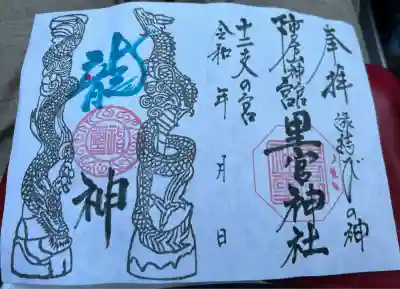 奉拝
縁結びの神
里宮神社
十二支の宮
令和　年　月　日
龍
神